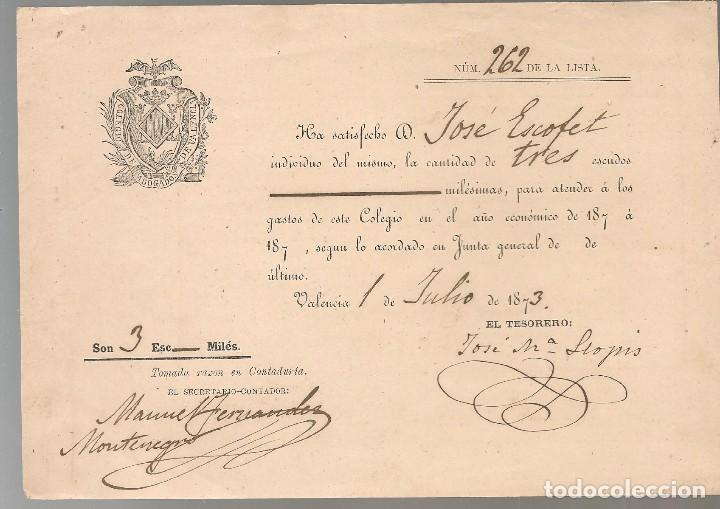 NÚM. 262 DE LA LISTA.
COLEGIO DE ABOGADOS DE VALENCIA
Ha satisfecho D. José Escofet
individuo del mismo, la cantidad de tres escudos
milésimas, para atender á los
gastos de este Colegio en el año económico de 187 á
187 , segun lo acordado en Junta general de de
último.
Valencia 1 de Julio de 1873.
EL TESORERO:
José Mª Llopis
Son 3 Esc Milés.
Tomado razon en Contaduría.
EL SECRETARIO-CONTADOR:
Manuel Fernandez
Montenegro
todocoleccion.net